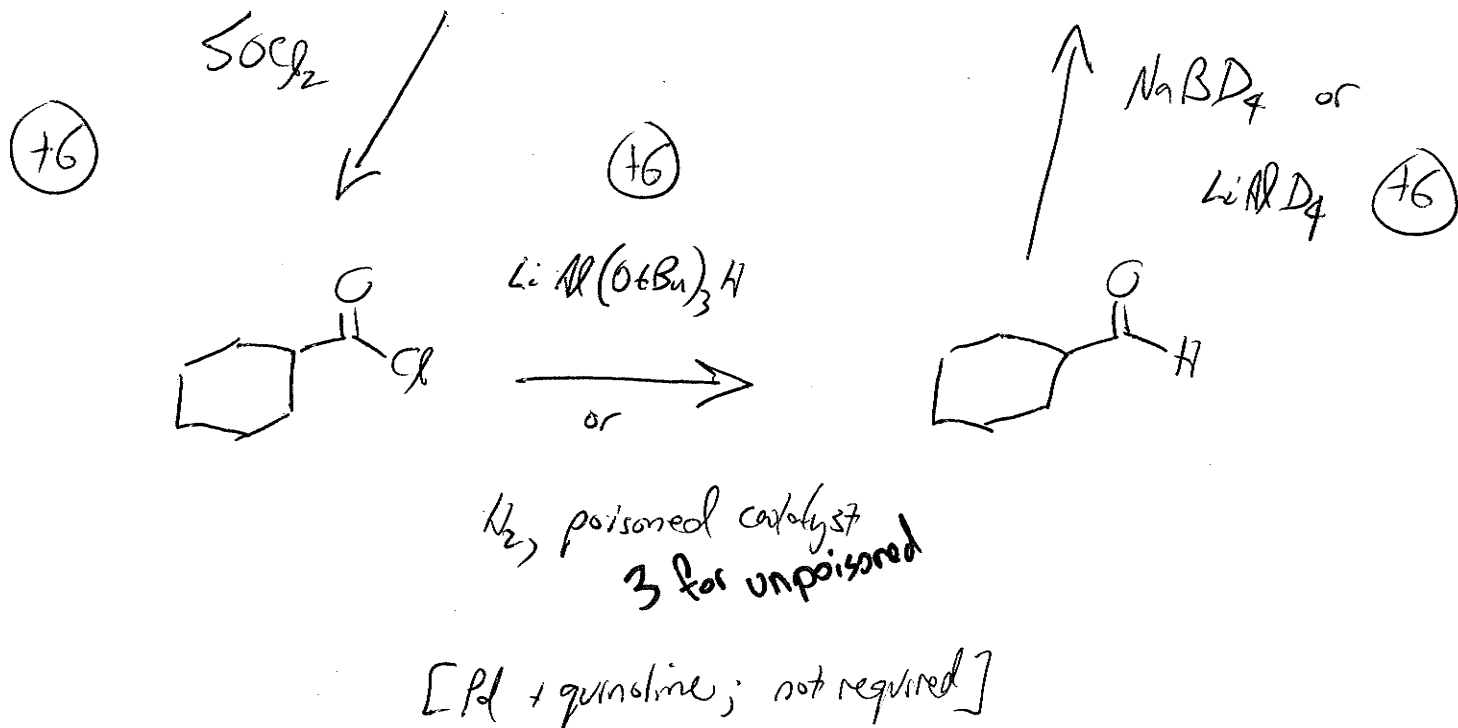 SOCl2
NaBD4 or
+6
+6
LiAlD4 +6
LiAl(OtBu)3H
O
O
Cl
H
or
H2, poisoned catalyst
3 for unpoisoned
[Pd + quinoline; not required]